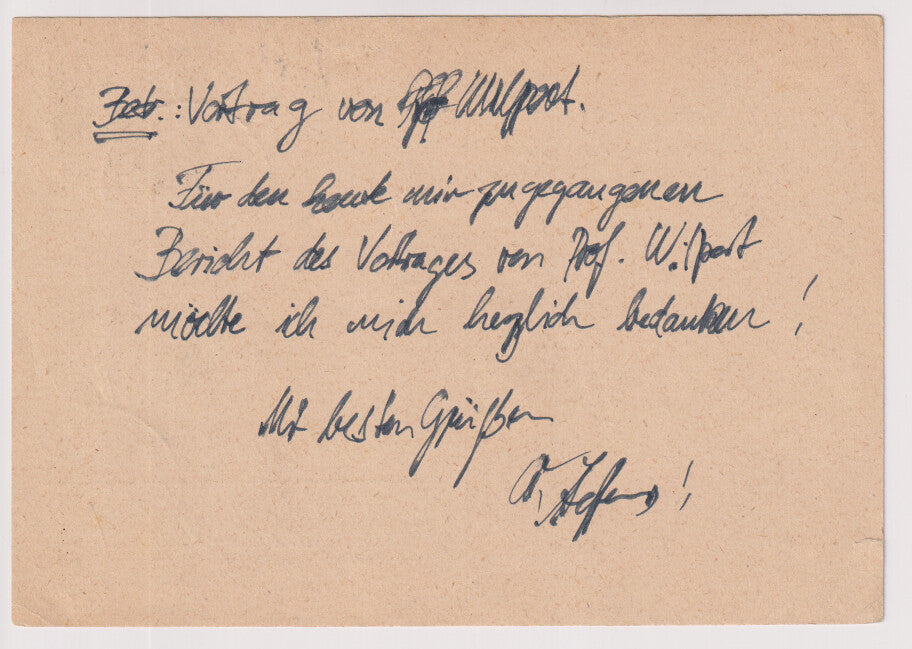 Betr.: Vortrag von Prof. Wilpert.
Für den heute mir zugegangenen
Bericht des Vortrages von Prof. Wilpert
möchte ich mich herzlich bedanken!
Mit besten Grüßen